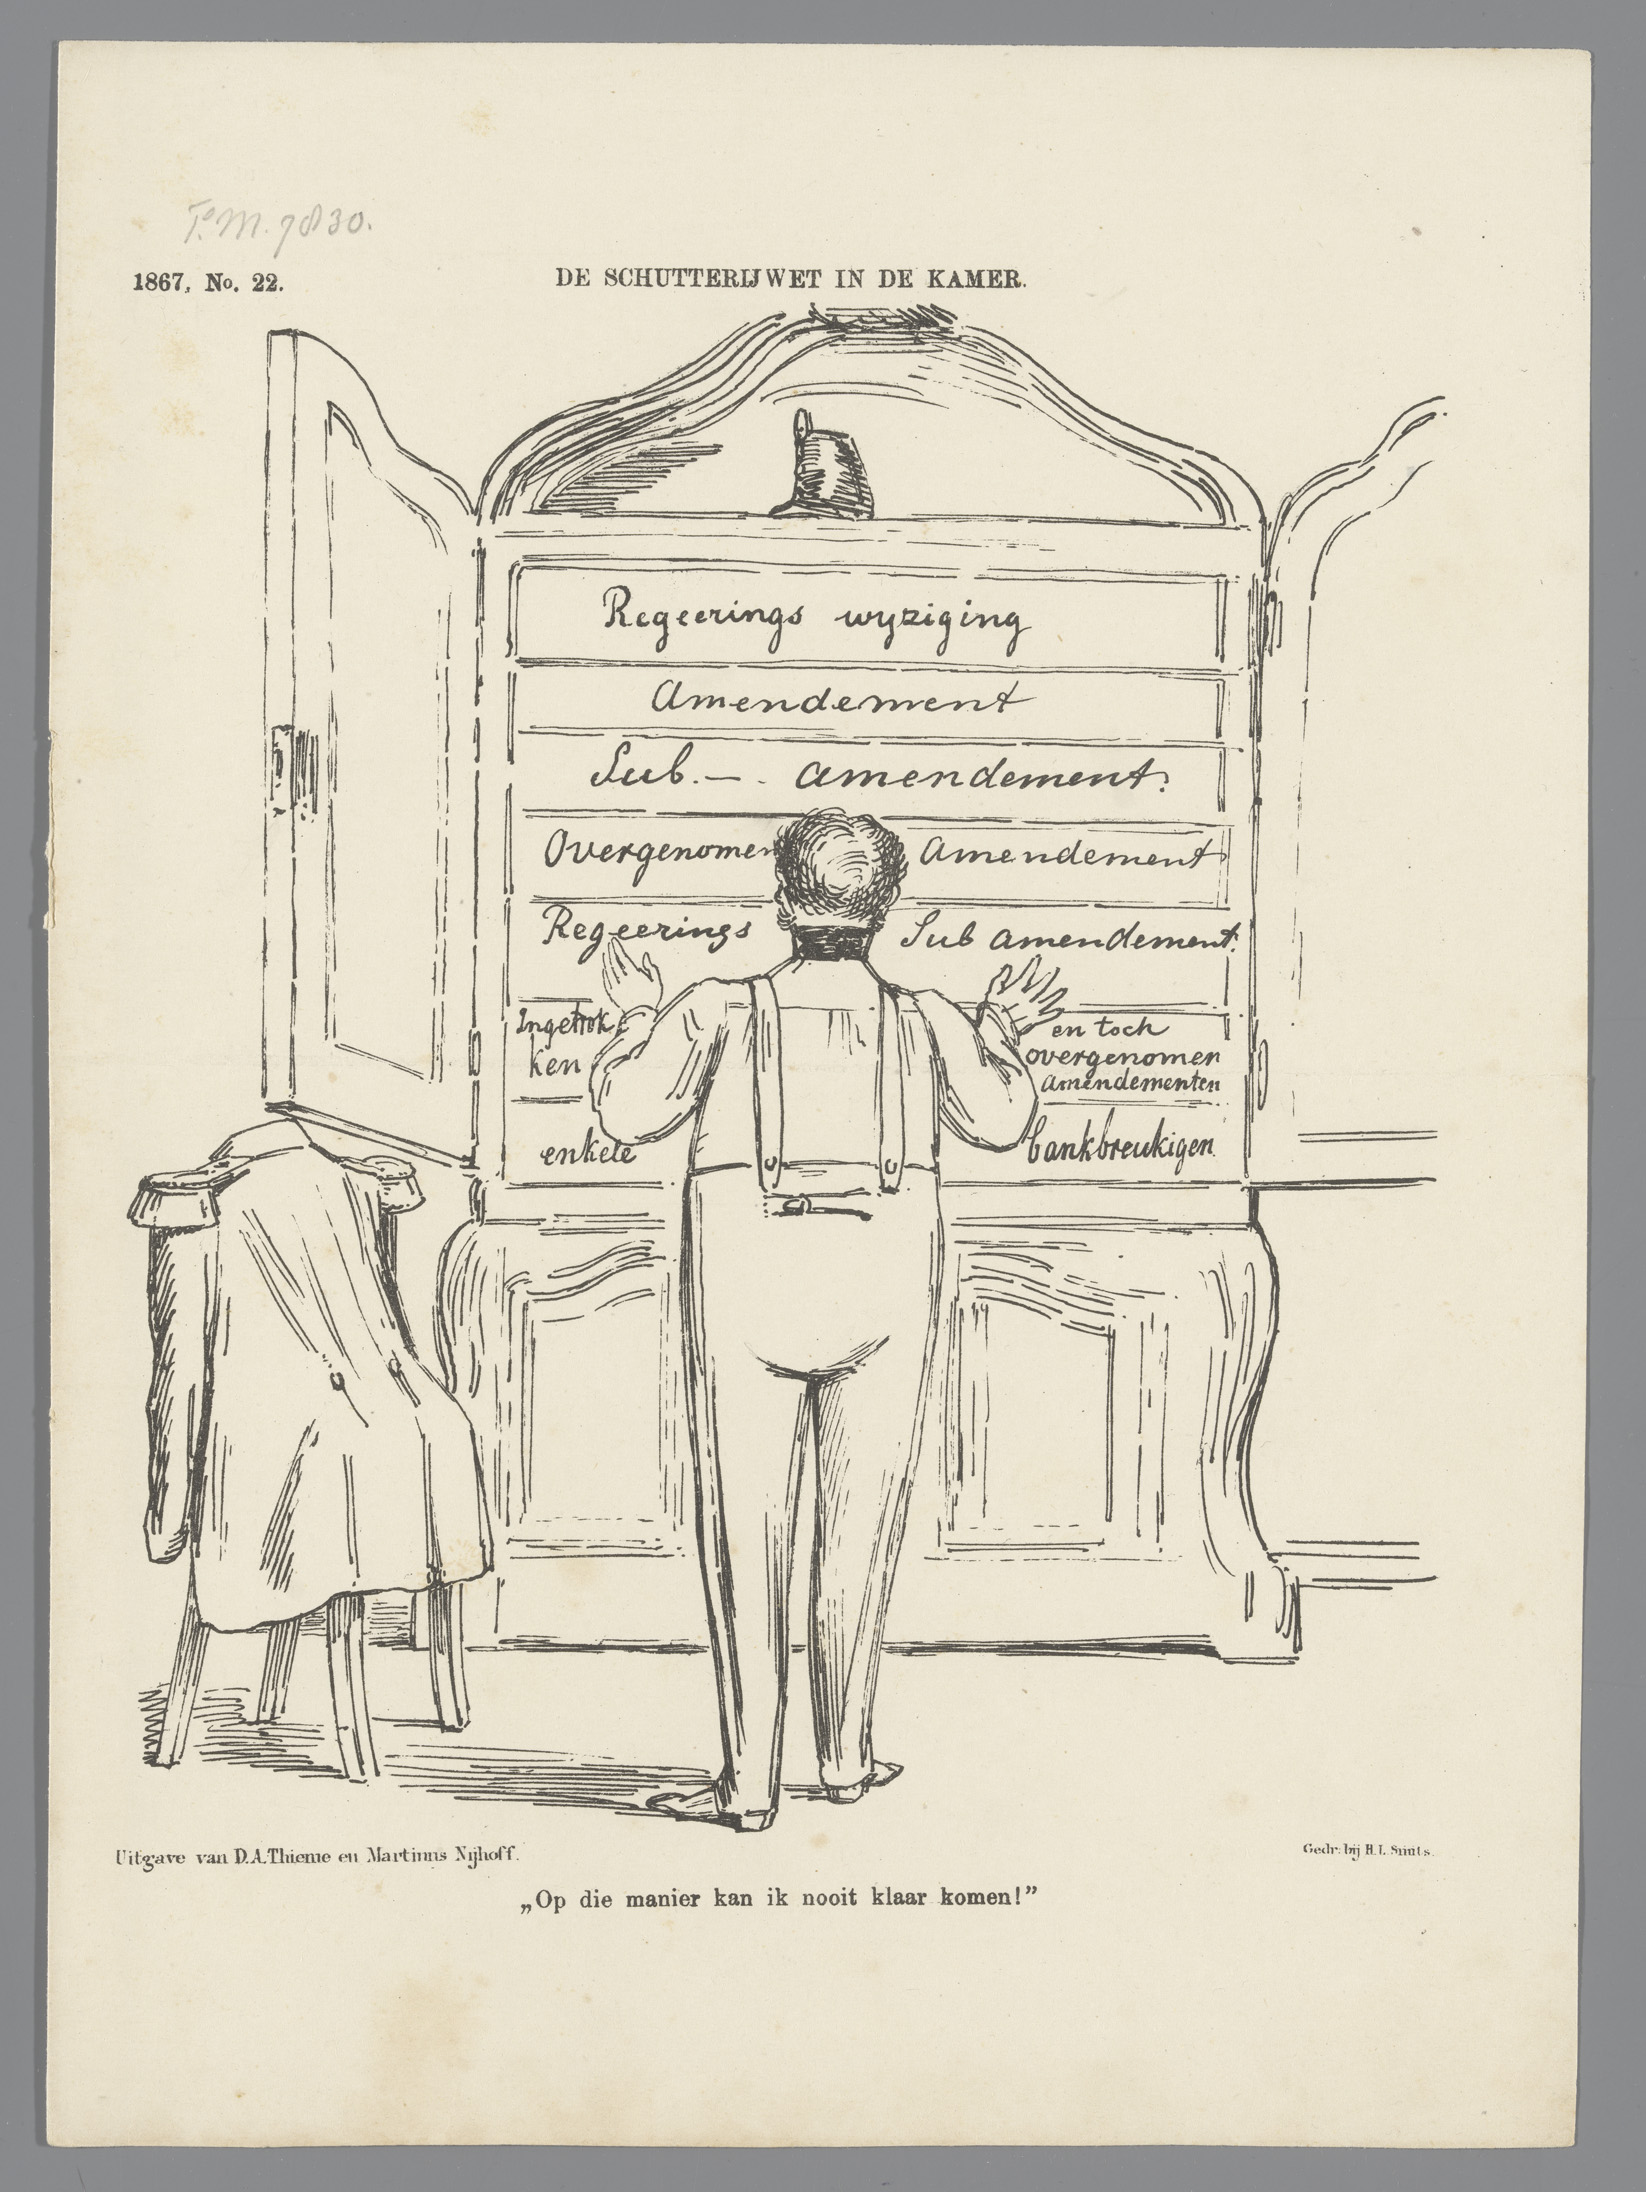 F.M. 7830.
1867, No. 22.
DE SCHUTTERIJWET IN DE KAMER.
Regeerings wyziging
Amendement
Sub. — . amendement.
Overgenomen Amendement
Regeerings Sub amendement.
Ingetrok
ken
en toch
overgenomen
amendementen
enkele bankbreukigen
Uitgave van D.A. Thieme en Martinus Nijhoff.
Gedr. bij H.L. Smits.
„Op die manier kan ik nooit klaar komen!”